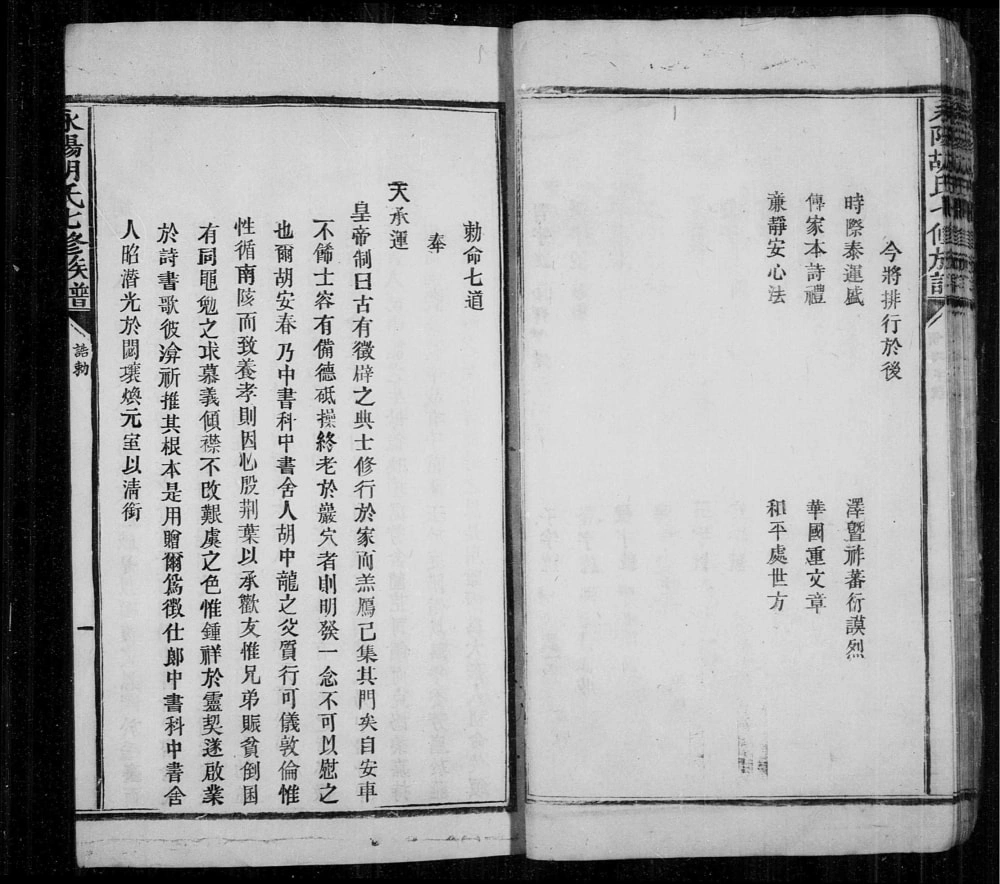 泰陽胡氏七修族譜
今將排行於後
時際泰運盛　澤曁祚蕃衍謨烈
傳家本詩禮　華國重文章
亷靜安心法　和平處世方
勅命七道
奉
天承運
皇帝制曰古有徵辟之典士修行於家而羔鴈已集其門矣自安車
不俻士容有備德砥操終老於巖穴者則明發一念不可以慰之
也爾胡安春乃中書科中書舍人胡中龍之父質行可儀敦倫惟
性循南陔而致養孝則因心殷荆葉以承歡友惟兄弟賑貧倒囷
有同黽勉之求慕義傾襟不改艱虞之色惟鍾祥於靈契遂啟業
於詩書歌彼渰祈推其根本是用贈爾爲徵仕郎中書科中書舍
人昭潜光於閟壤煥元室以清銜
泳陽胡氏七修族譜
誥勅
一